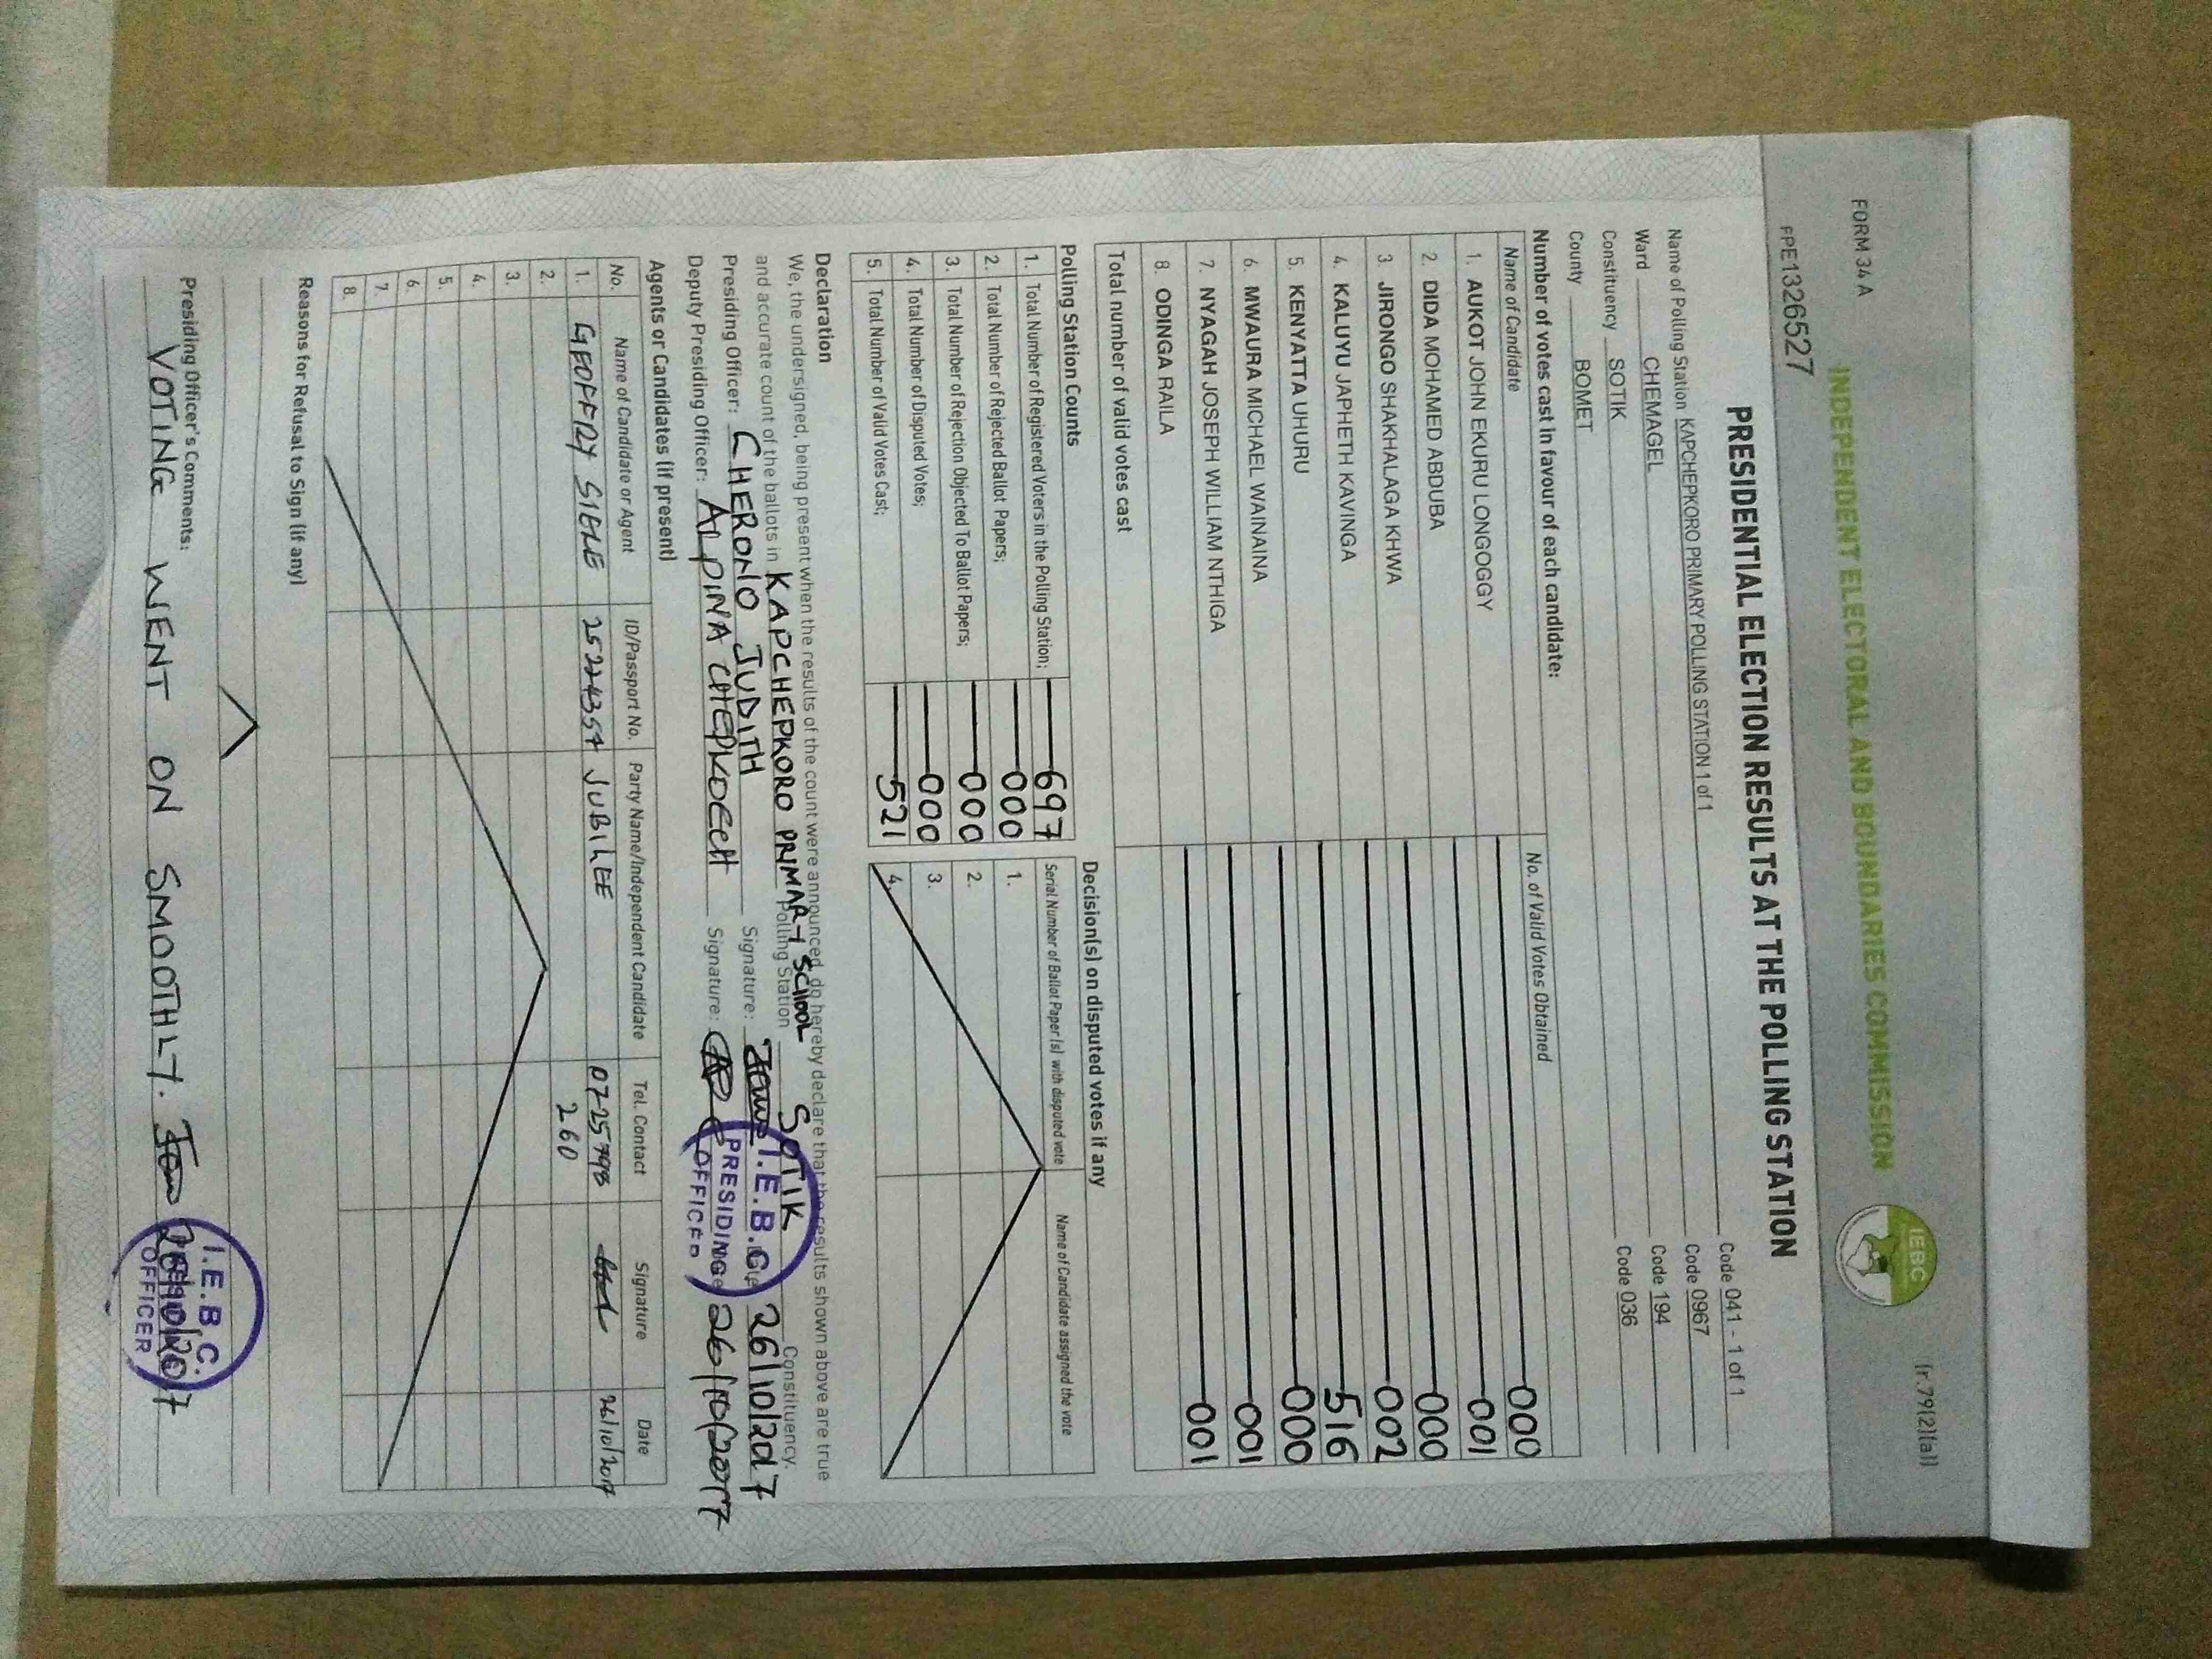 FORM 34 A
(r.79(2)(a))
INDEPENDENT ELECTORAL AND BOUNDARIES COMMISSION
IEBC
FPE1326527
PRESIDENTIAL ELECTION RESULTS AT THE POLLING STATION
Name of Polling Station KAPCHEPKORO PRIMARY POLLING STATION 1 of 1 Code 041 - 1 of 1
Ward CHEMAGEL Code 0967
Constituency SOTIK Code 194
County BOMET Code 036
Number of votes cast in favour of each candidate:
Name of Candidate No. of Valid Votes Obtained
1. AUKOT JOHN EKURU LONGOGGY 000
2. DIDA MOHAMED ABDUBA 001
3. JIRONGO SHAKHALAGA KHWA 000
4. KALUYU JAPHETH KAVINGA 002
5. KENYATTA UHURU 516
6. MWAURA MICHAEL WAINAINA 000
7. NYAGAH JOSEPH WILLIAM NTHIGA 001
8. ODINGA RAILA 001
Total number of valid votes cast
Polling Station Counts
1. Total Number of Registered Voters in the Polling Station; 697
2. Total Number of Rejected Ballot Papers; 000
3. Total Number of Rejection Objected To Ballot Papers; 000
4. Total Number of Disputed Votes; 000
5. Total Number of Valid Votes Cast; 521
Decision(s) on disputed votes if any
Serial Number of Ballot Paper (s) with disputed vote Name of Candidate assigned the vote
1.
2.
3.
4.
Declaration
We, the undersigned, being present when the results of the count were announced, do hereby declare that the results shown above are true
and accurate count of the ballots in KAPCHEPKORO PRIMARY SCHOOL Polling Station SOTIK Constituency.
Presiding Officer: CHERONO JUDITH Signature: 26/10/2017
Deputy Presiding Officer: ALPINA CHEPKOECH Signature: 26/10/2017
I.E.B.C.
PRESIDING
OFFICER
Agents or Candidates (if present)
No. Name of Candidate or Agent ID/Passport No. Party Name/Independent Candidate Tel. Contact Signature Date
1. GEOFFRY SIELE 25224354 JUBILEE 0725798 26/10/2017
2. 260
3.
4.
5.
6.
7.
8.
Reasons for Refusal to Sign (if any)
Presiding Officer's Comments:
VOTING WENT ON SMOOTHLY. 26/10/2017
I.E.B.C.
OFFICER